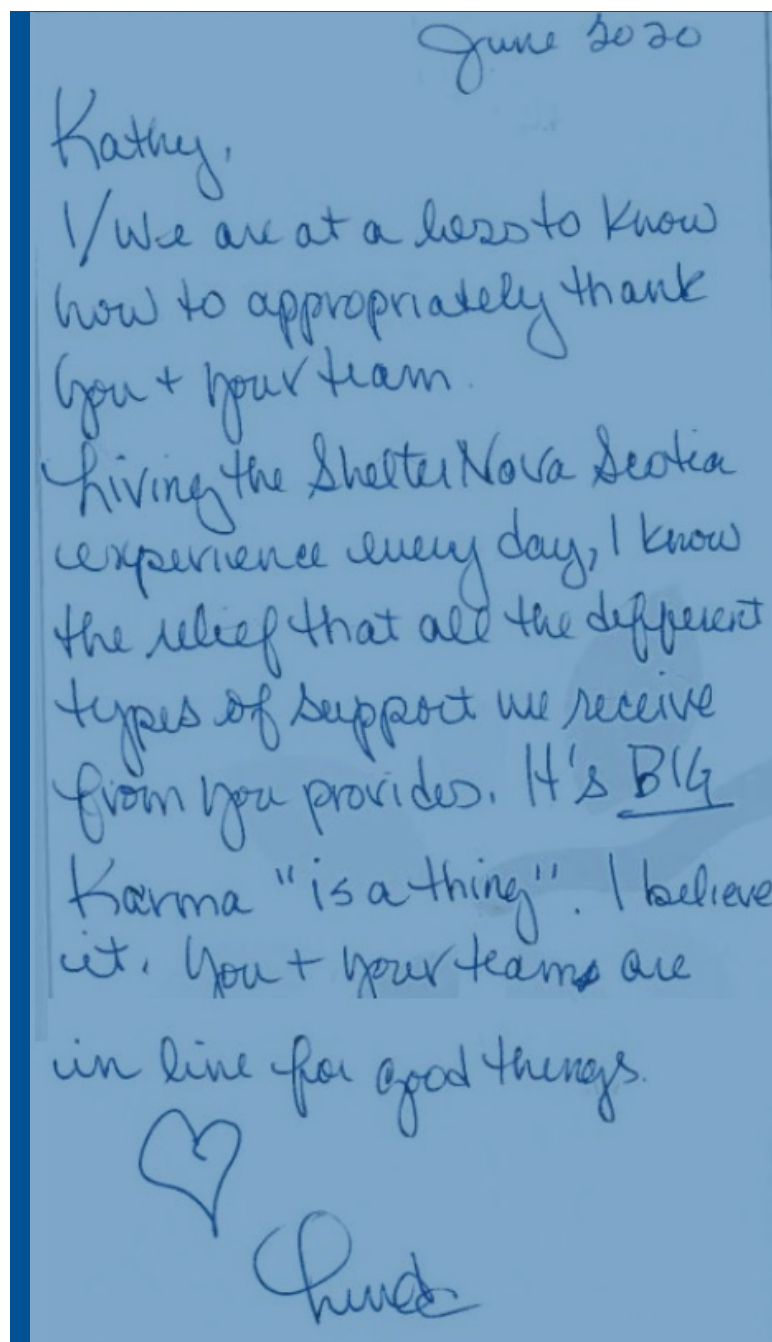 June 2020
Kathy,
I/We are at a loss to know
how to appropriately thank
you + your team.
Living the Shelter Nova Scotia
experience every day, I know
the relief that all the different
types of support we receive
from you provides. It's BIG
Karma "is a thing". I believe
it. You + your teams are
in line for good things.
Linda